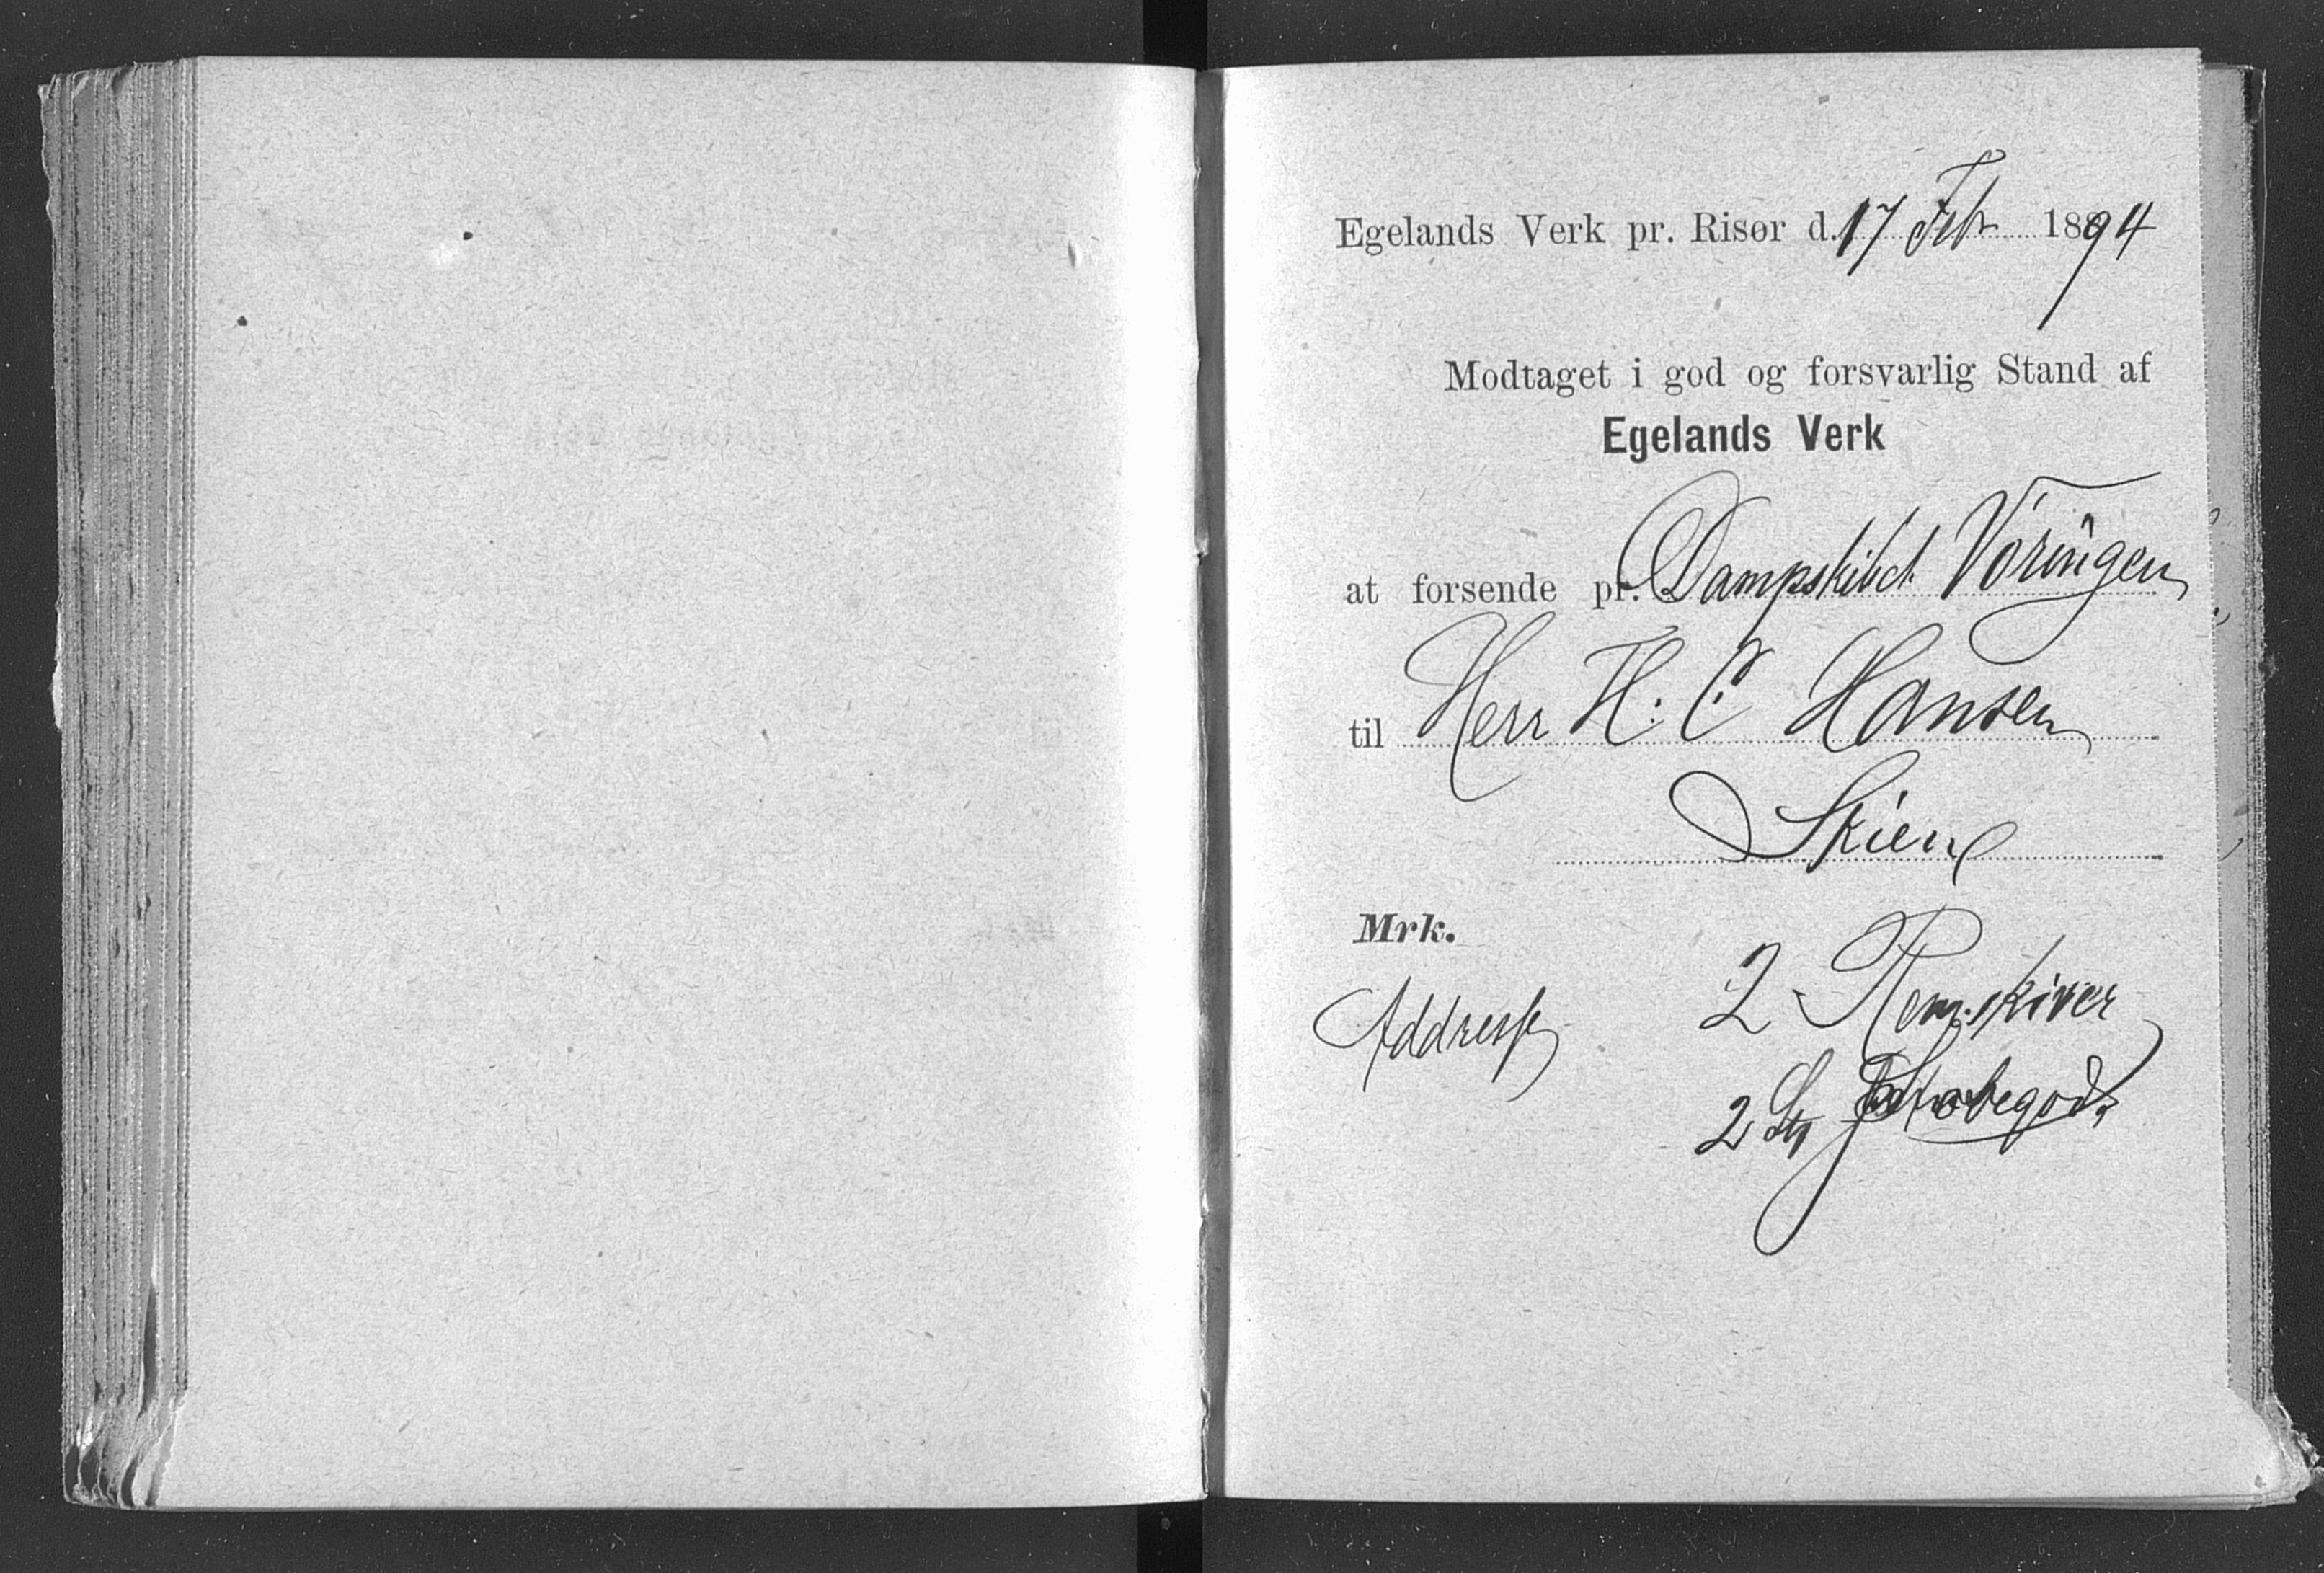 Egelands Verk pr. Risør d. 17 Febr 1894
Modtaget i god og forsvarlig Stand af
Egelands Verk
at forsende pr. Dampskibet Vøringen
til Herr H. C. Hansen
Skien
Mrk.
Addresse
2 Remskiver
2 St Støbegods